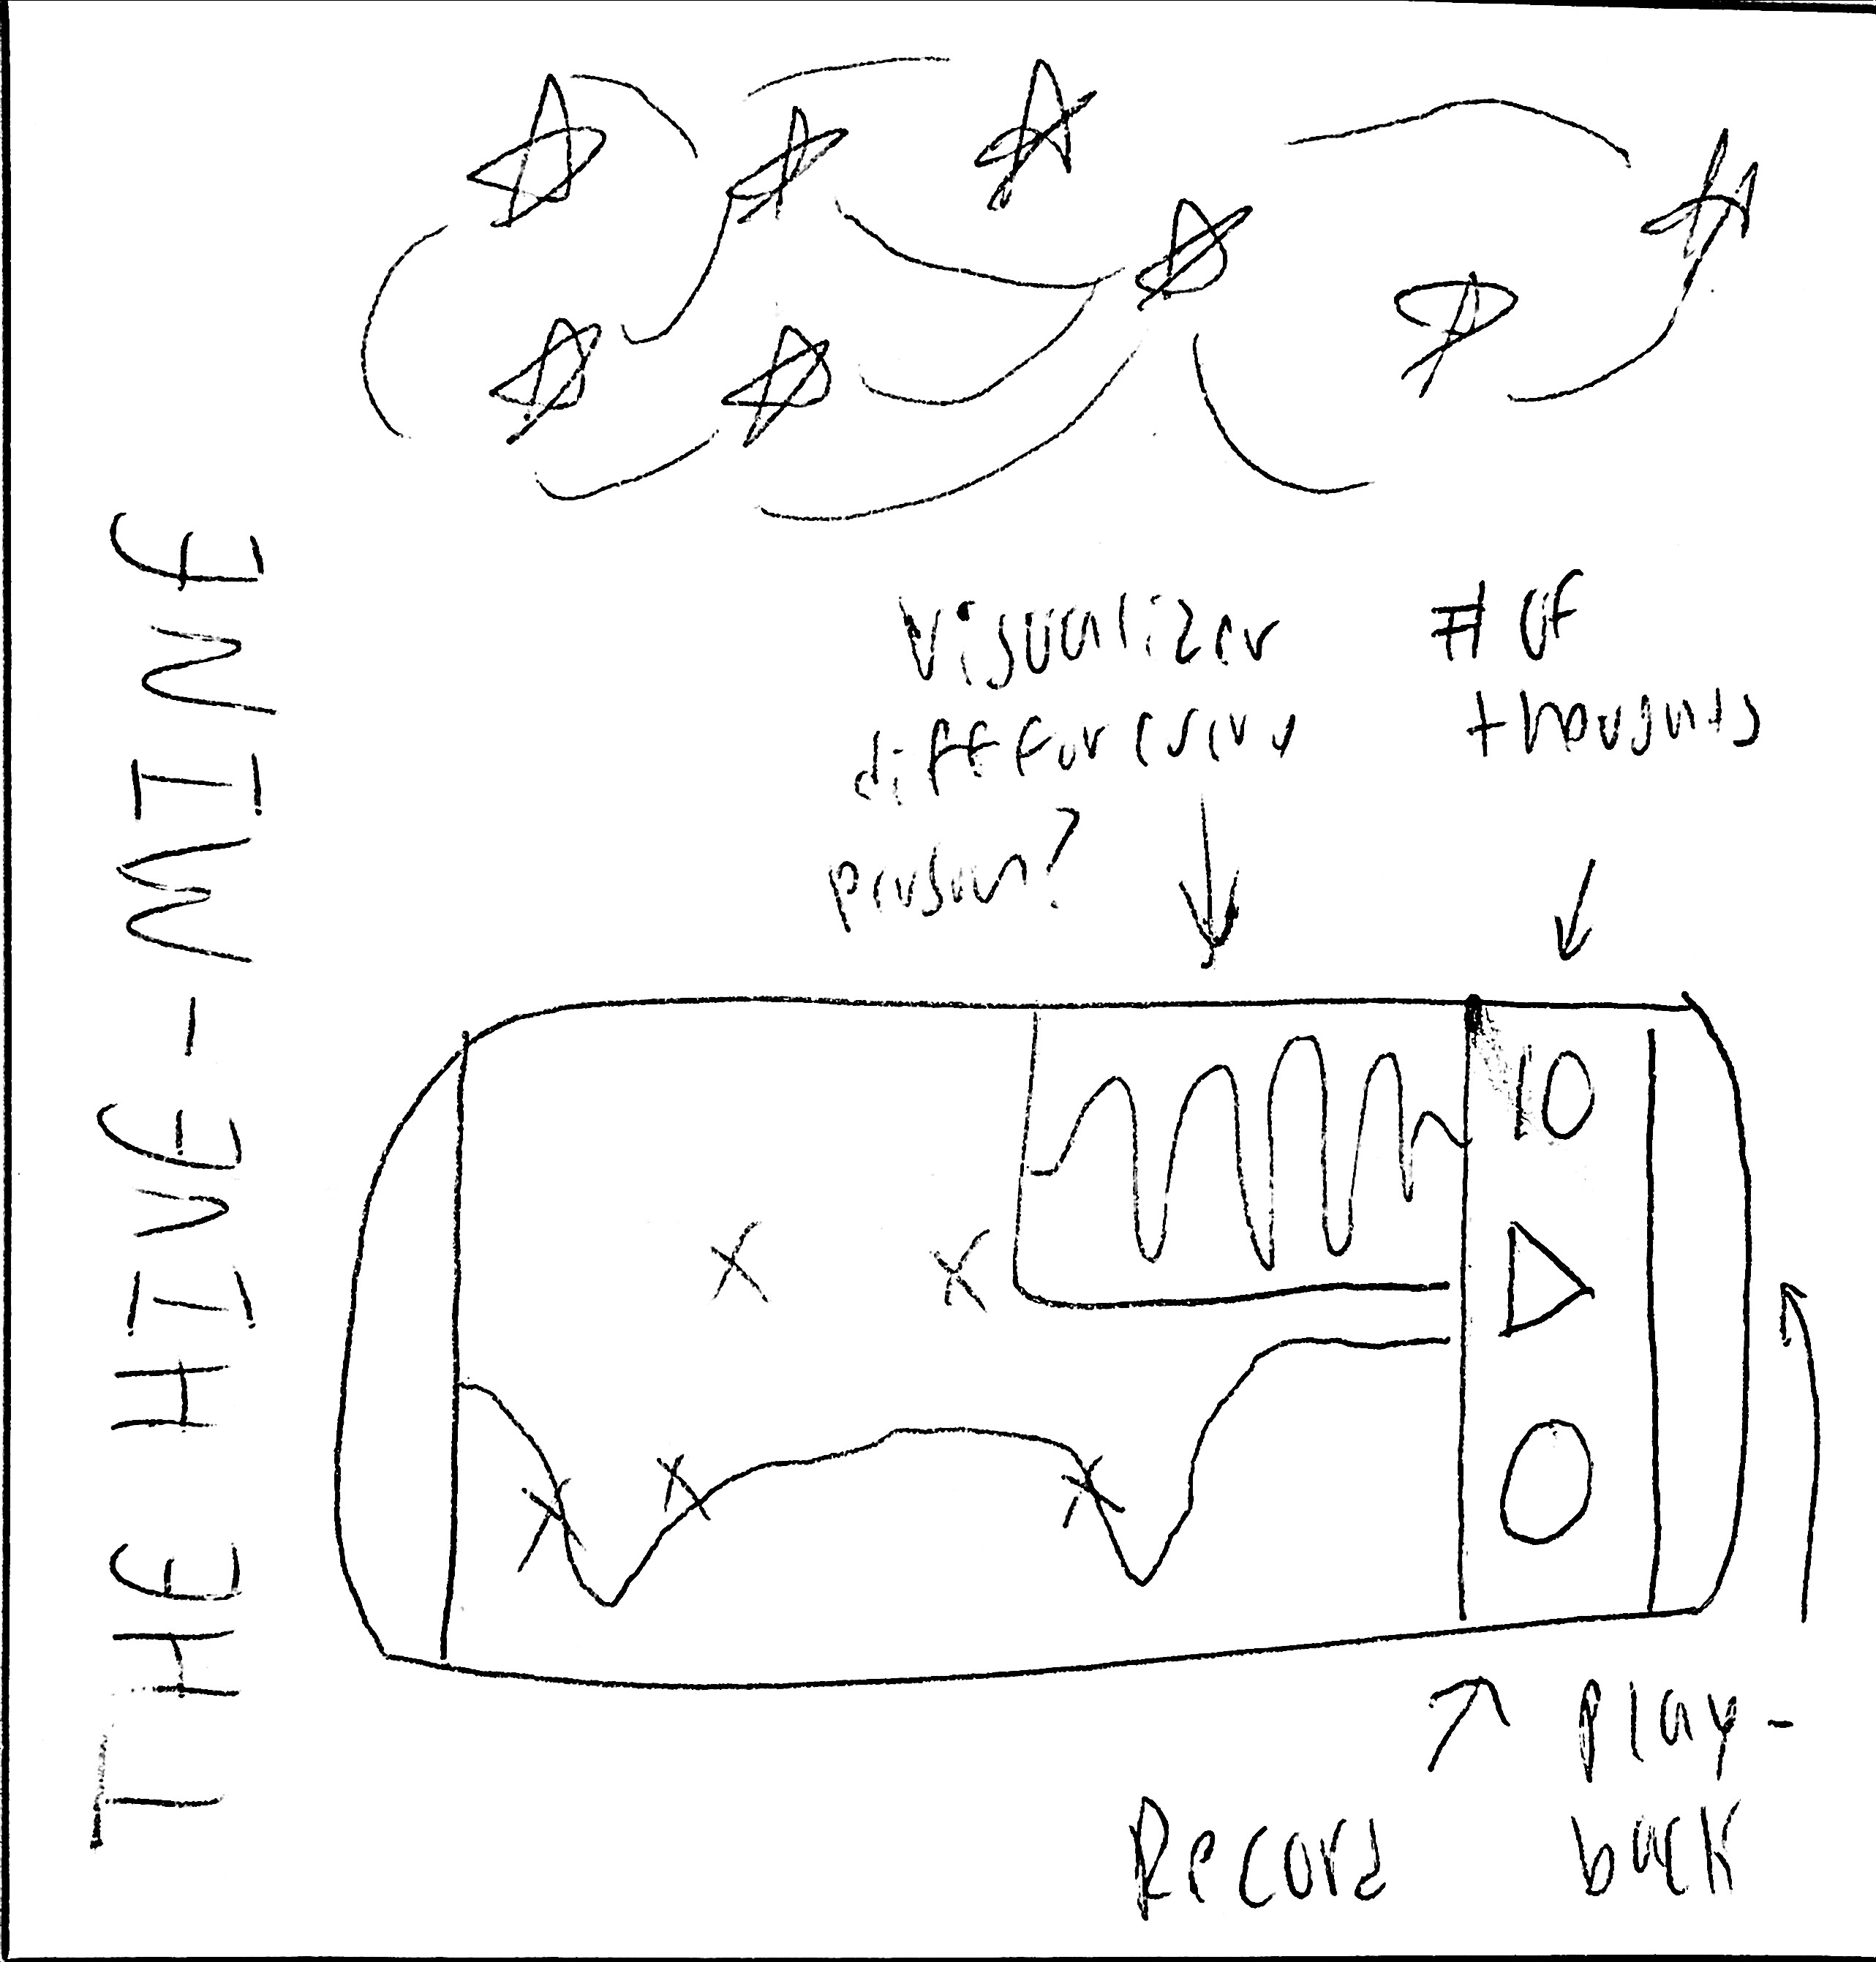 THE HIVE-MINE
Visualizer
diff for every
person?
# of
thoughts
10
Record
play-
back